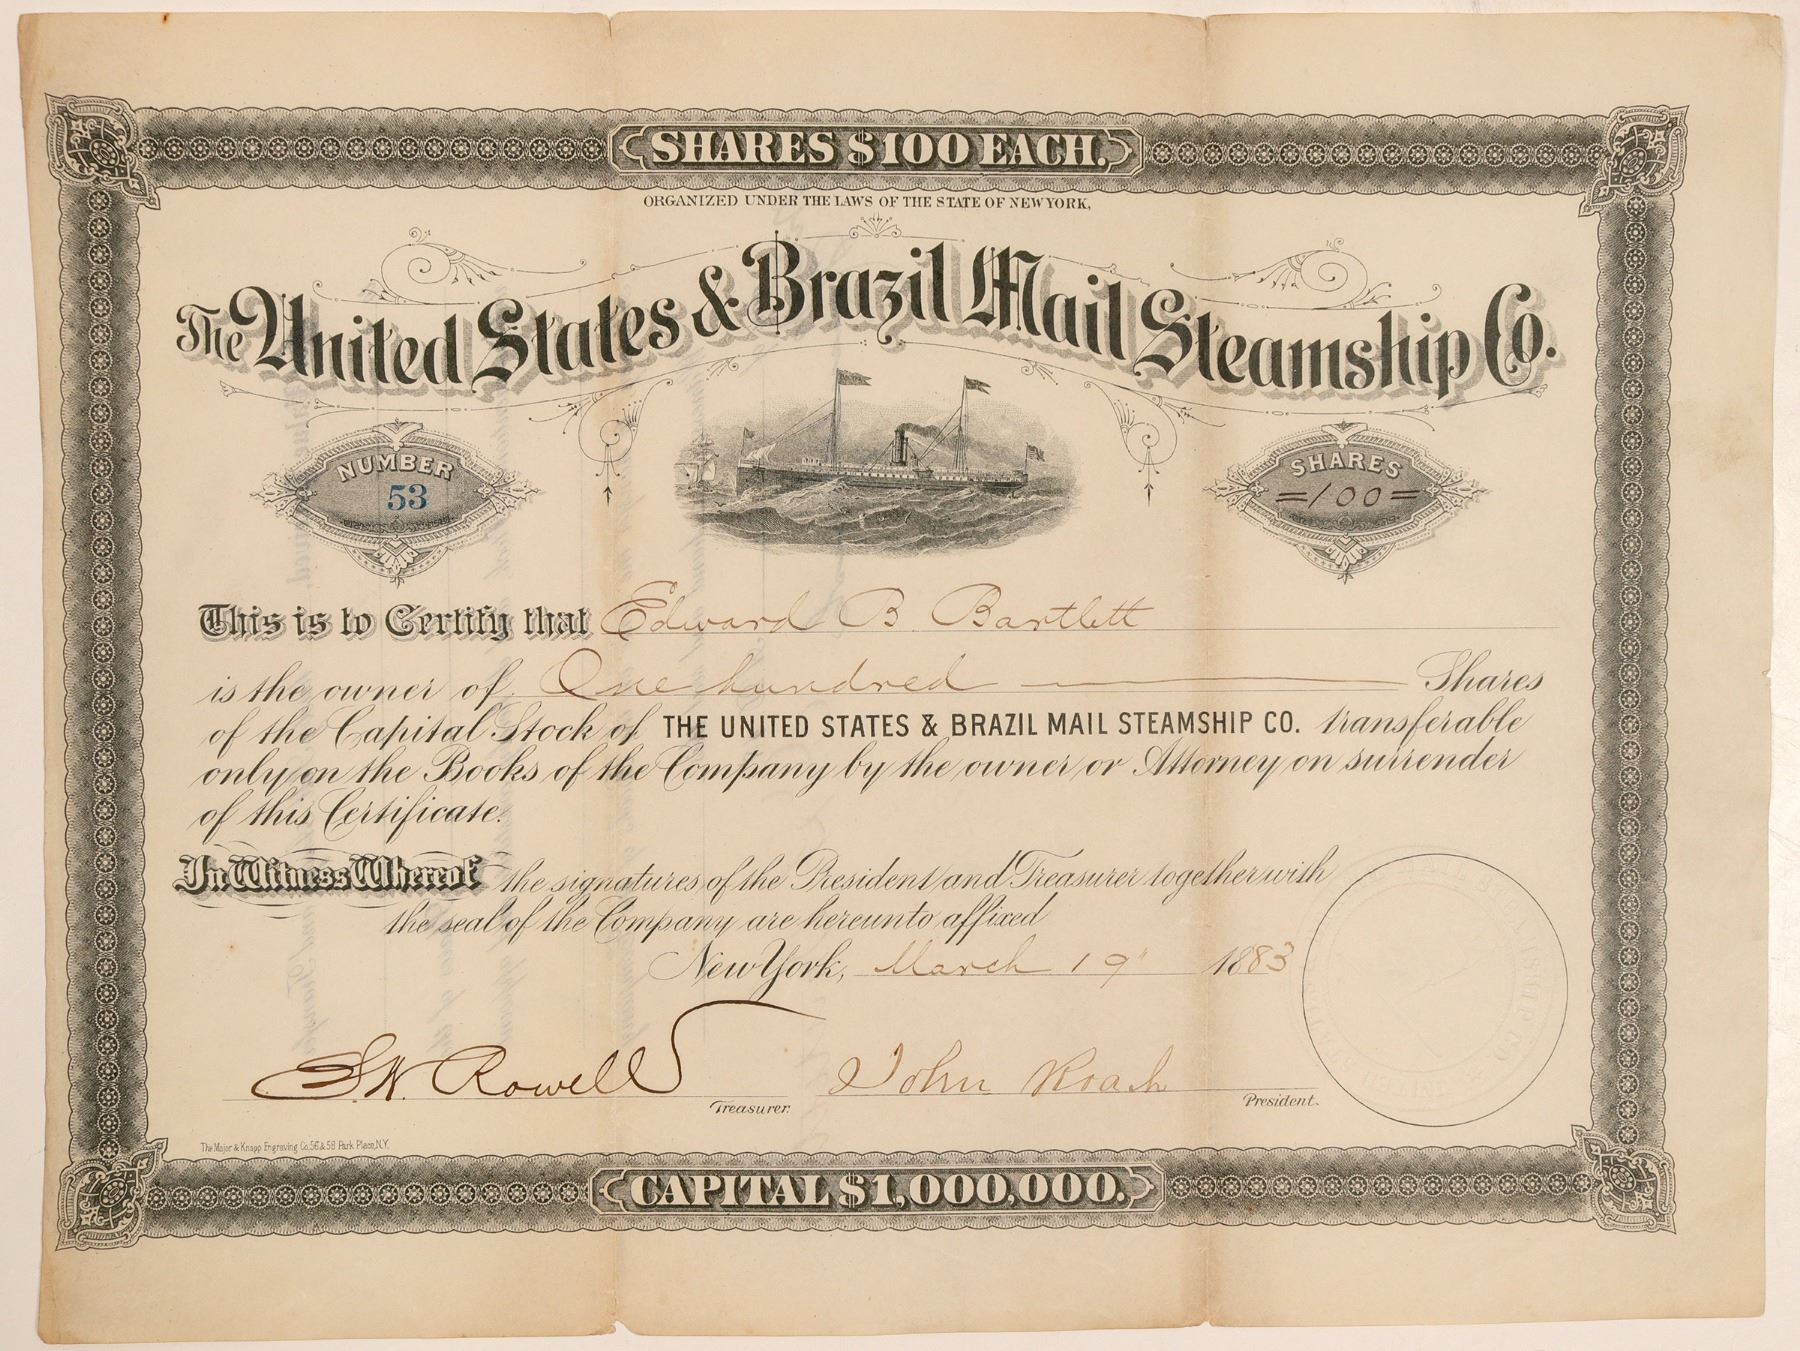 SHARES $100 EACH.
ORGANIZED UNDER THE LAWS OF THE STATE OF NEW YORK,
The United States & Brazil Mail Steamship Co.
NUMBER
53
SHARES
=100=
This is to Certify that Edward B Bartlett
is the owner of One hundred Shares
of the Capital Stock of THE UNITED STATES & BRAZIL MAIL STEAMSHIP CO. transferable
only on the Books of the Company by the owner or Attorney on surrender
of this Certificate.
In Witness Whereof the signatures of the President and Treasurer together with
the seal of the Company are hereunto affixed
New York, March 19" 1883
S.W. Rowell Treasurer. John Roach President.
The Major & Knapp Engraving Co. 56 & 58 Park Place, N.Y.
CAPITAL $1,000,000.